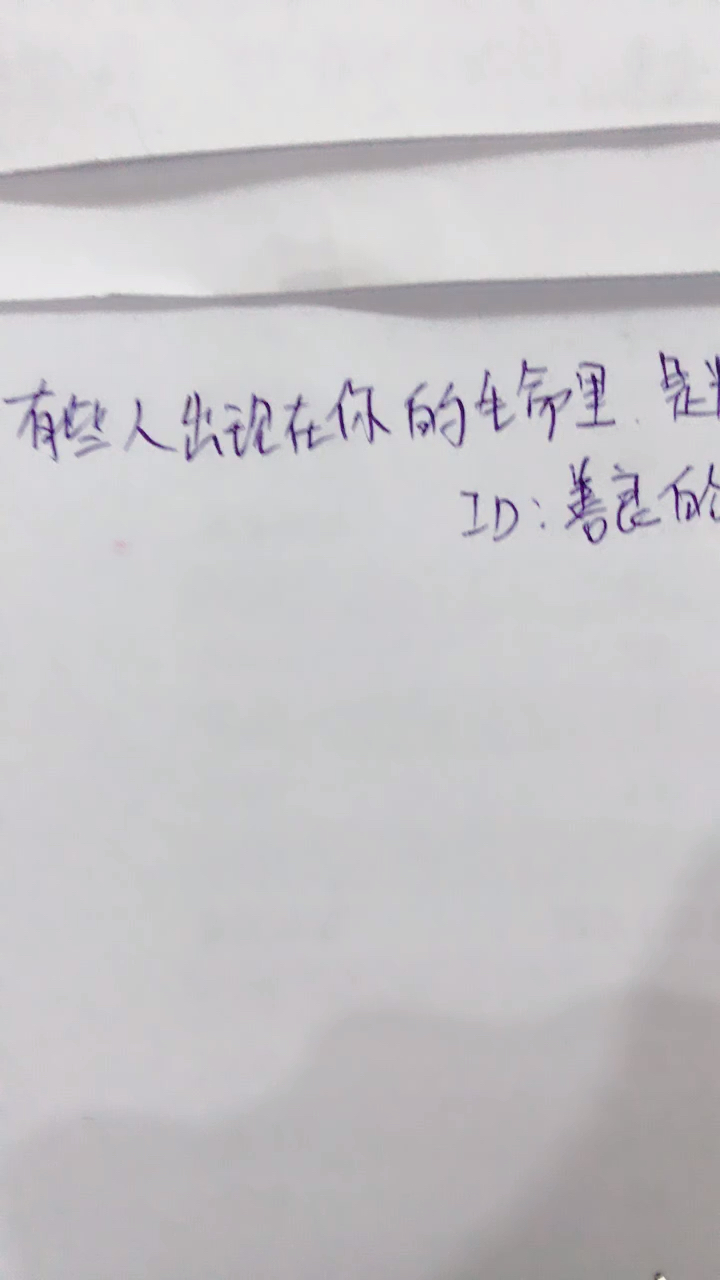 有些人出现在你的生命里.是
ID:善良的